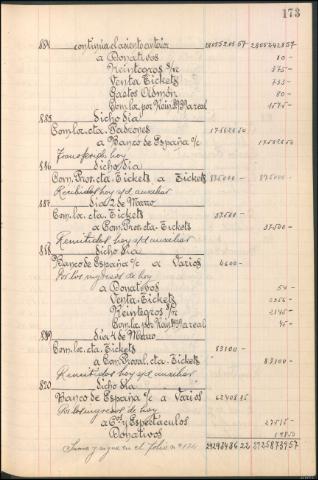 173
884 continúa el asiento anterior 28055205 57 28052428 57
a Donativos 10 -
Reintegros s/c 875 -
Venta Tickets 733 -
Gastos Admón 80 -
885 dicho dia
Com. loc. cta. Padrones 17562 50
a Banco de España c/c 17562 50
Transferido hoy
886 dicho dia
Com. Prov. cta. Tickets a Tickets 875000 - 875000 -
Recibidos hoy s/d auxiliar
887 día 2 de Marzo
Com. loc. cta. Tickets 37500 -
a Com. Prov. cta. Tickets 37500 -
Remitidos hoy s/d auxiliar
888 dicho dia
Banco de España c/c a Varios 4600 -
Por los ingresos de hoy
a Donativos 54 -
Venta Tickets
Reintegros s/c 2145 -
889 día 4 de Marzo
Com. loc. cta. Tickets 83100 -
a Com. Proval. cta. Tickets 83100 -
Remitidos hoy s/d auxiliar
890 dicho dia
Banco de España c/c a Varios
Por los ingresos de hoy
a Cos y Espectáculos 27515 -
Donativos
Suma y sigue en el folio nº 174